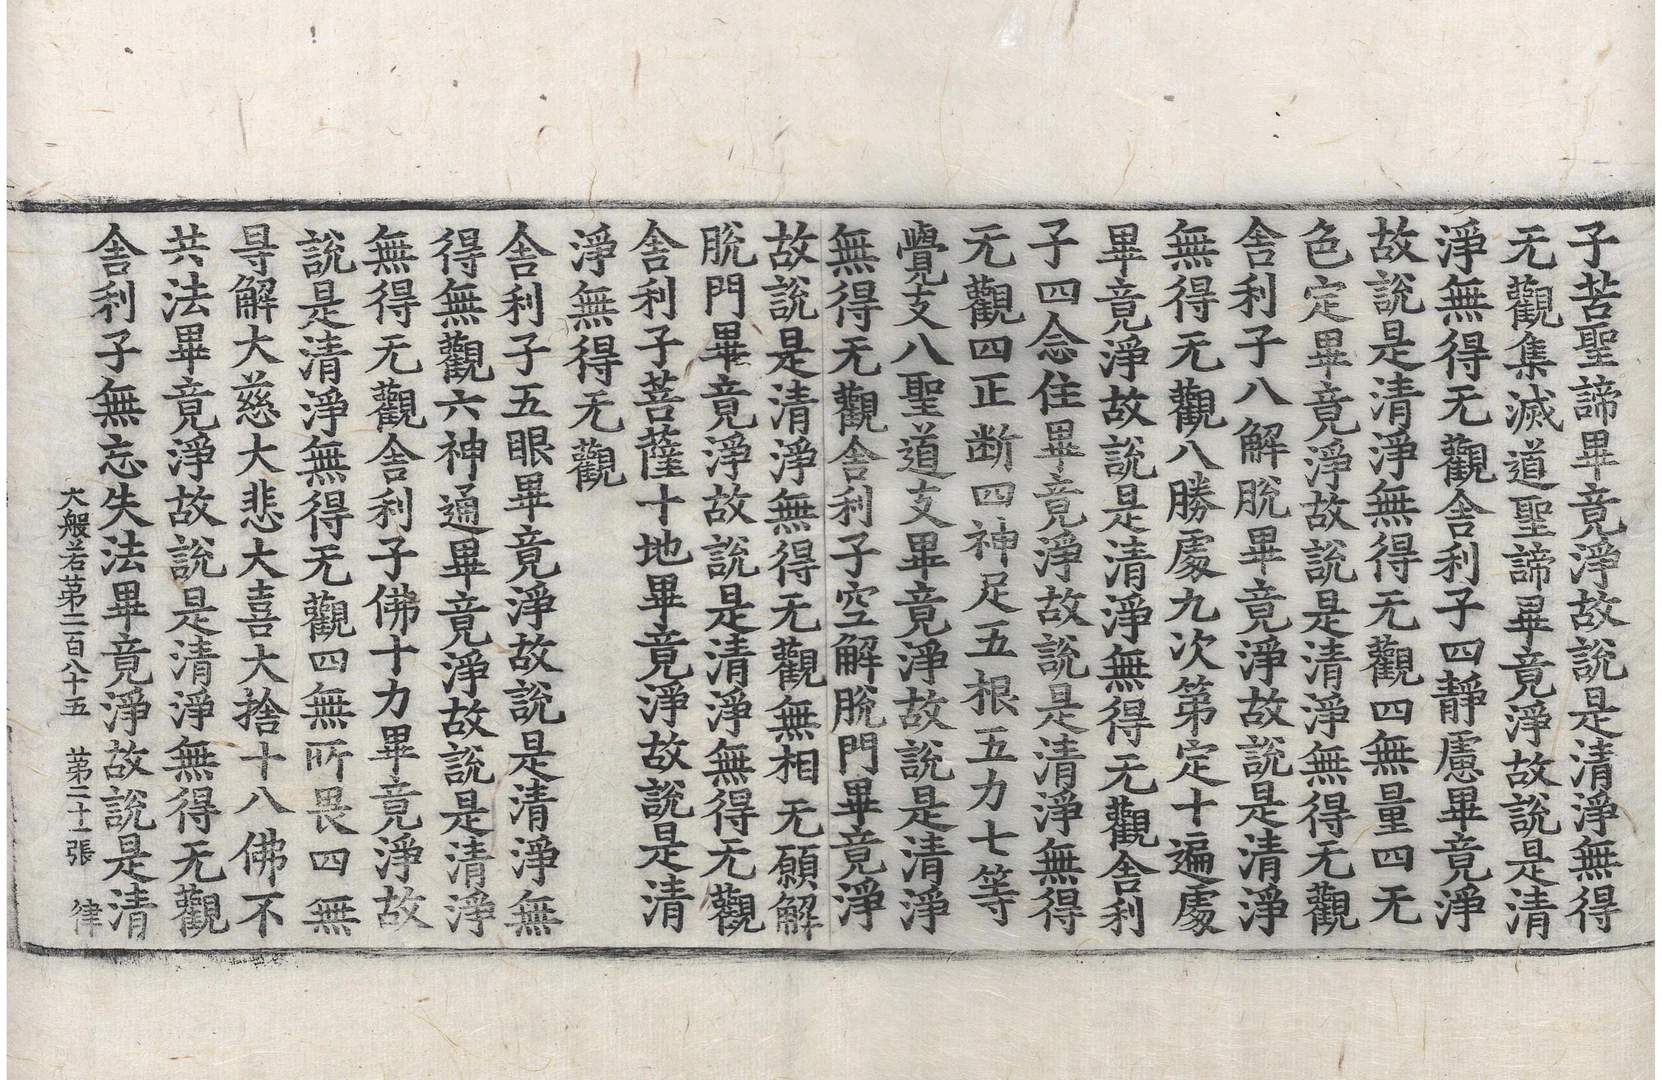 子苦聖諦畢竟淨故說是清淨無得
无觀集滅道聖諦畢竟淨故說是清
淨無得无觀舍利子四靜慮畢竟淨
故說是清淨無得无觀四無量四无
色定畢竟淨故說是清淨無得无觀
舍利子八解脫畢竟淨故說是清淨
無得无觀八勝處九次第定十遍處
畢竟淨故說是清淨無得无觀舍利
子四念住畢竟淨故說是清淨無得
无觀四正断四神足五根五力七等
覺支八聖道支畢竟淨故說是清淨
無得无觀舍利子空解脫門畢竟淨
故說是清淨無得无觀無相无願解
脫門畢竟淨故說是清淨無得无觀
舍利子菩薩十地畢竟淨故說是清
淨無得无觀
舍利子五眼畢竟淨故說是清淨無
得無觀六神通畢竟淨故說是清淨
無得无觀舍利子佛十力畢竟淨故
說是清淨無得无觀四無所畏四無
㝵解大慈大悲大喜大捨十八佛不
共法畢竟淨故說是清淨無得无觀
舍利子無忘失法畢竟淨故說是清
大般若苐二百八十五 苐二十一張 律